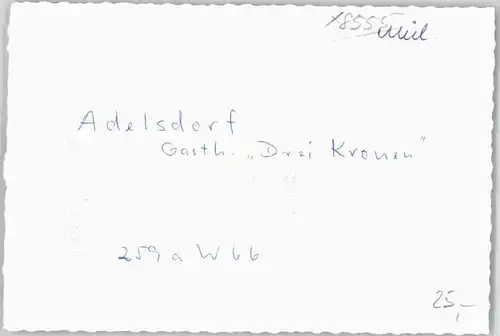 x8555
Adelsdorf
Gasth. „Drei Kronen"
259 a W 66
25,-